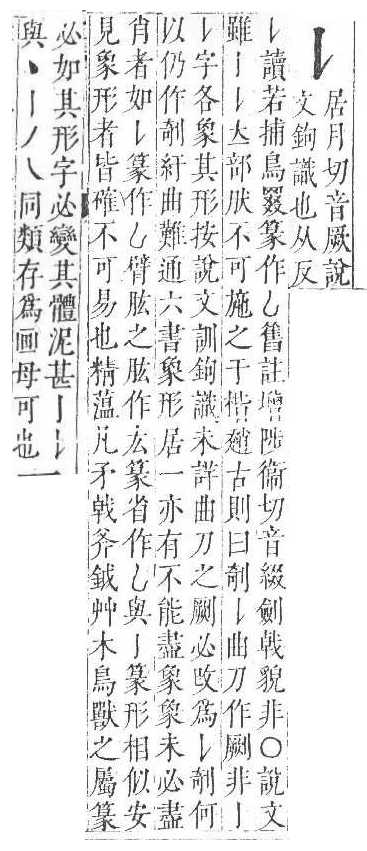 𠄌
居月切音厥說
文鉤識也从反
𠄌讀若捕鳥罬篆作乚舊註增陟衞切音綴劍戟貌非〇說文
雖亅𠄌部肰不可施之于楷趙古則曰剞𠄌曲刀作劂非亅
𠄌字各象其形按說文訓鉤識未詳曲刀之劂必攺爲𠄌剞何
以仍作剞紆曲難通六書象形居一亦有不能盡象象未必盡
肖者如𠄌篆作乚臂肱之肱作厷篆省作乚與亅篆形相似安
見象形者皆確不可易也精薀凡矛戟斧鉞艸木鳥獸之屬篆
必如其形字必變其體泥甚亅𠄌
與丶亅丿乀同類存爲画母可也